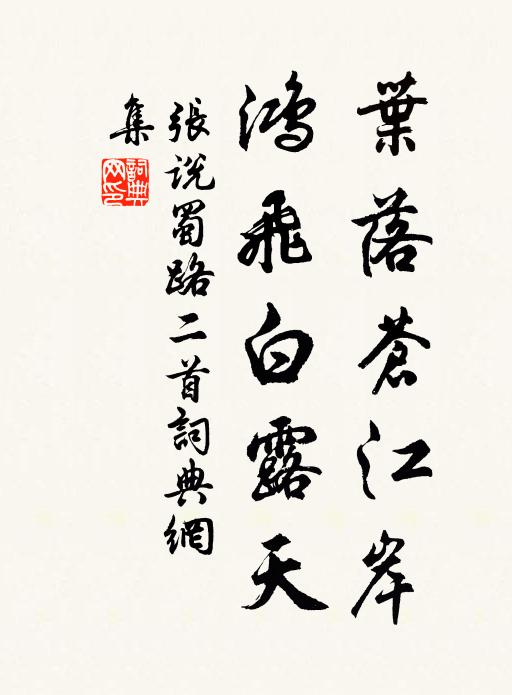 葉落蒼江岸
鴻飛白露天
張說蜀路二首詞典網
集
詞典
网印